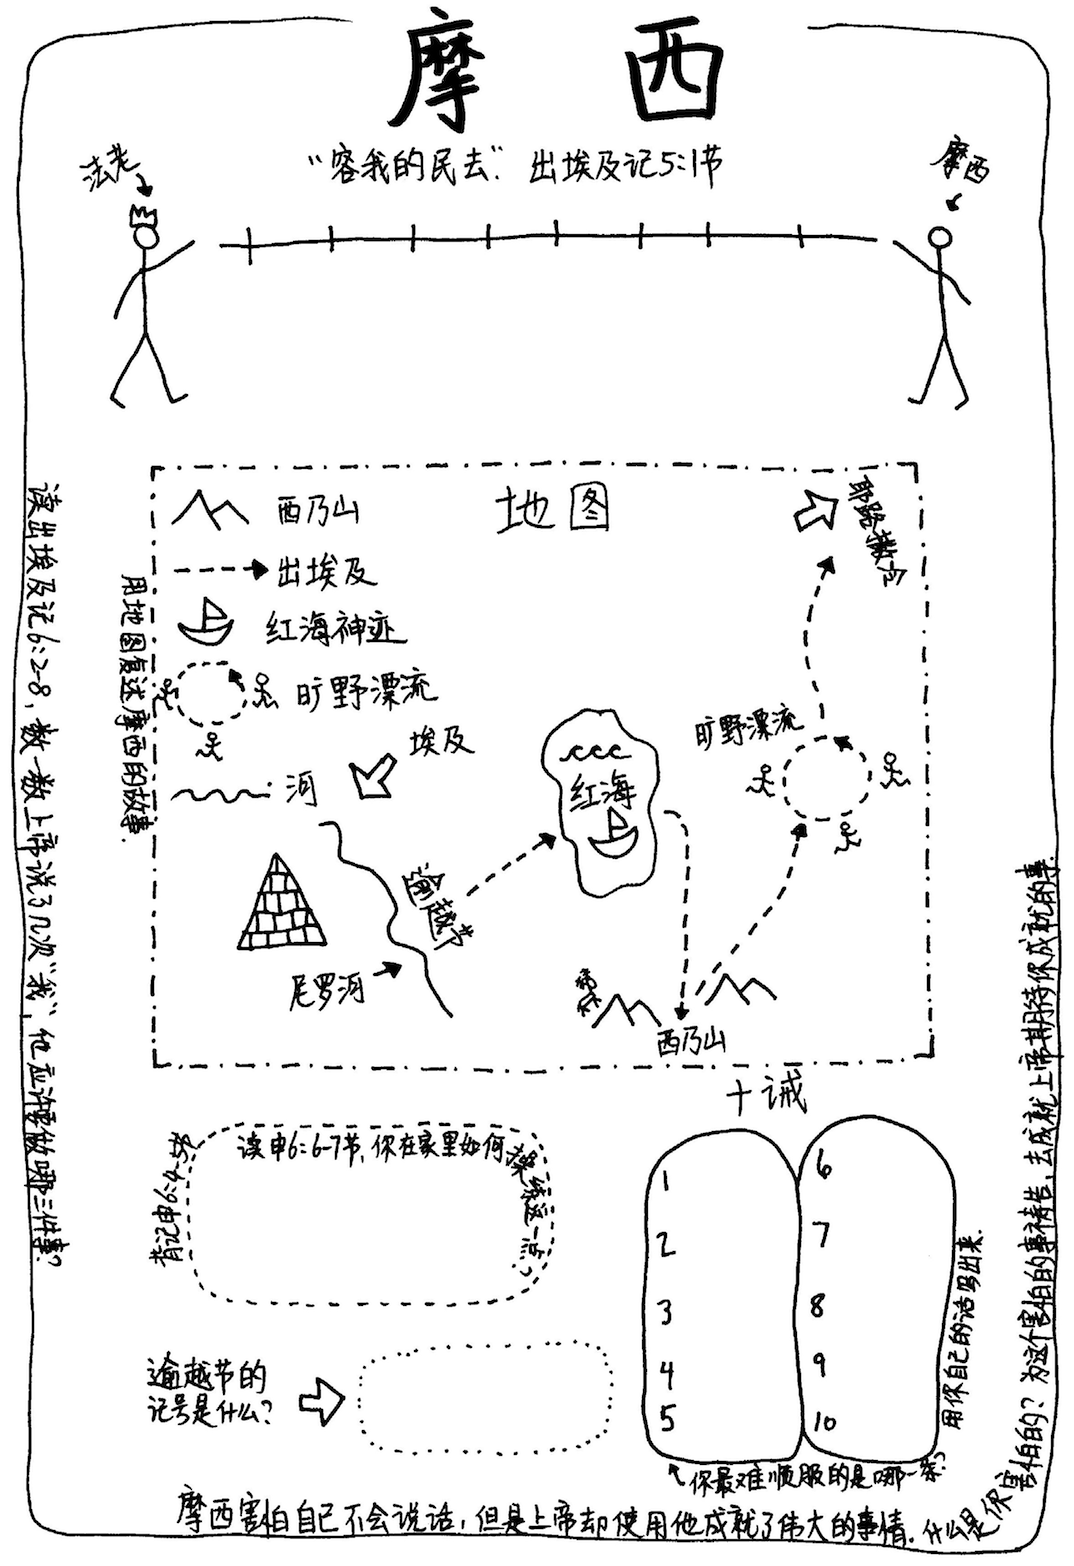 摩 西
法老
"容我的民去". 出埃及记5:1节
摩西
读出埃及记6:2-8,数一数上帝说了几次"我",他应许要做哪三件事?
用地图复述摩西的故事.
西乃山
出埃及
红海神迹
旷野漂流
河
地图
耶路撒冷
埃及
红海
旷野漂流
逾越节
尼罗河
西乃山
十诫
背记申6:4-5节
读申6:6-7节,你在家里如何操练这一点?
1
2
3
4
5
6
7
8
9
10
用你自己的话写出来.
你最难顺服的是哪一条?
逾越节的
记号是什么?
摩西害怕自己不会说话,但是上帝却使用他成就了伟大的事情.什么是你害怕的?为这个害怕的事祷告,去成就上帝期待你成就的事.